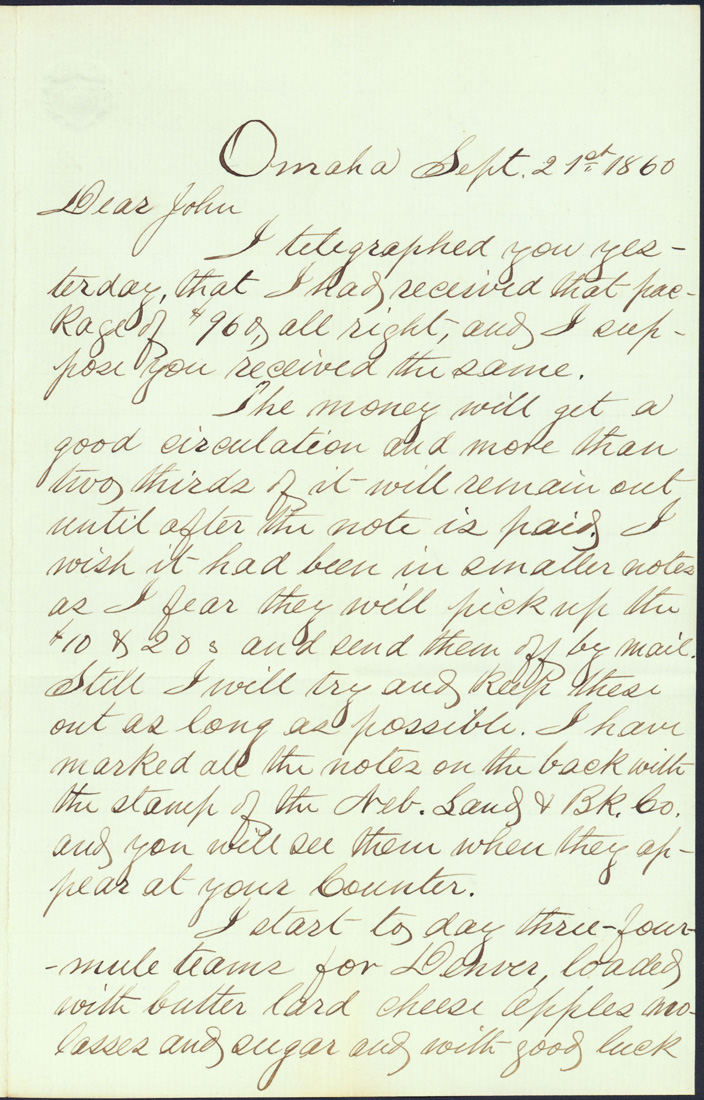 Omaha Sept. 21st 1860
Dear John
I telegraphed you yes-
terday, that I had received that pac-
kage of $960, all right, and I sup-
pose you received the same.
The money will get a
good circulation and more than
two thirds of it will remain out
until after the note is paid. I
wish it had been in smaller notes
as I fear they will pick up the
$10 & 20s and send them off by mail.
Still I will try and keep these
out as long as possible. I have
marked all the notes on the back with
the stamp of the Neb. Land & Bk. Co.
and you will see them when they ap-
pear at your Counter.
I start to day three-four-
-mule teams for Denver, loaded
with butter lard cheese apples mo-
lasses and sugar and with good luck